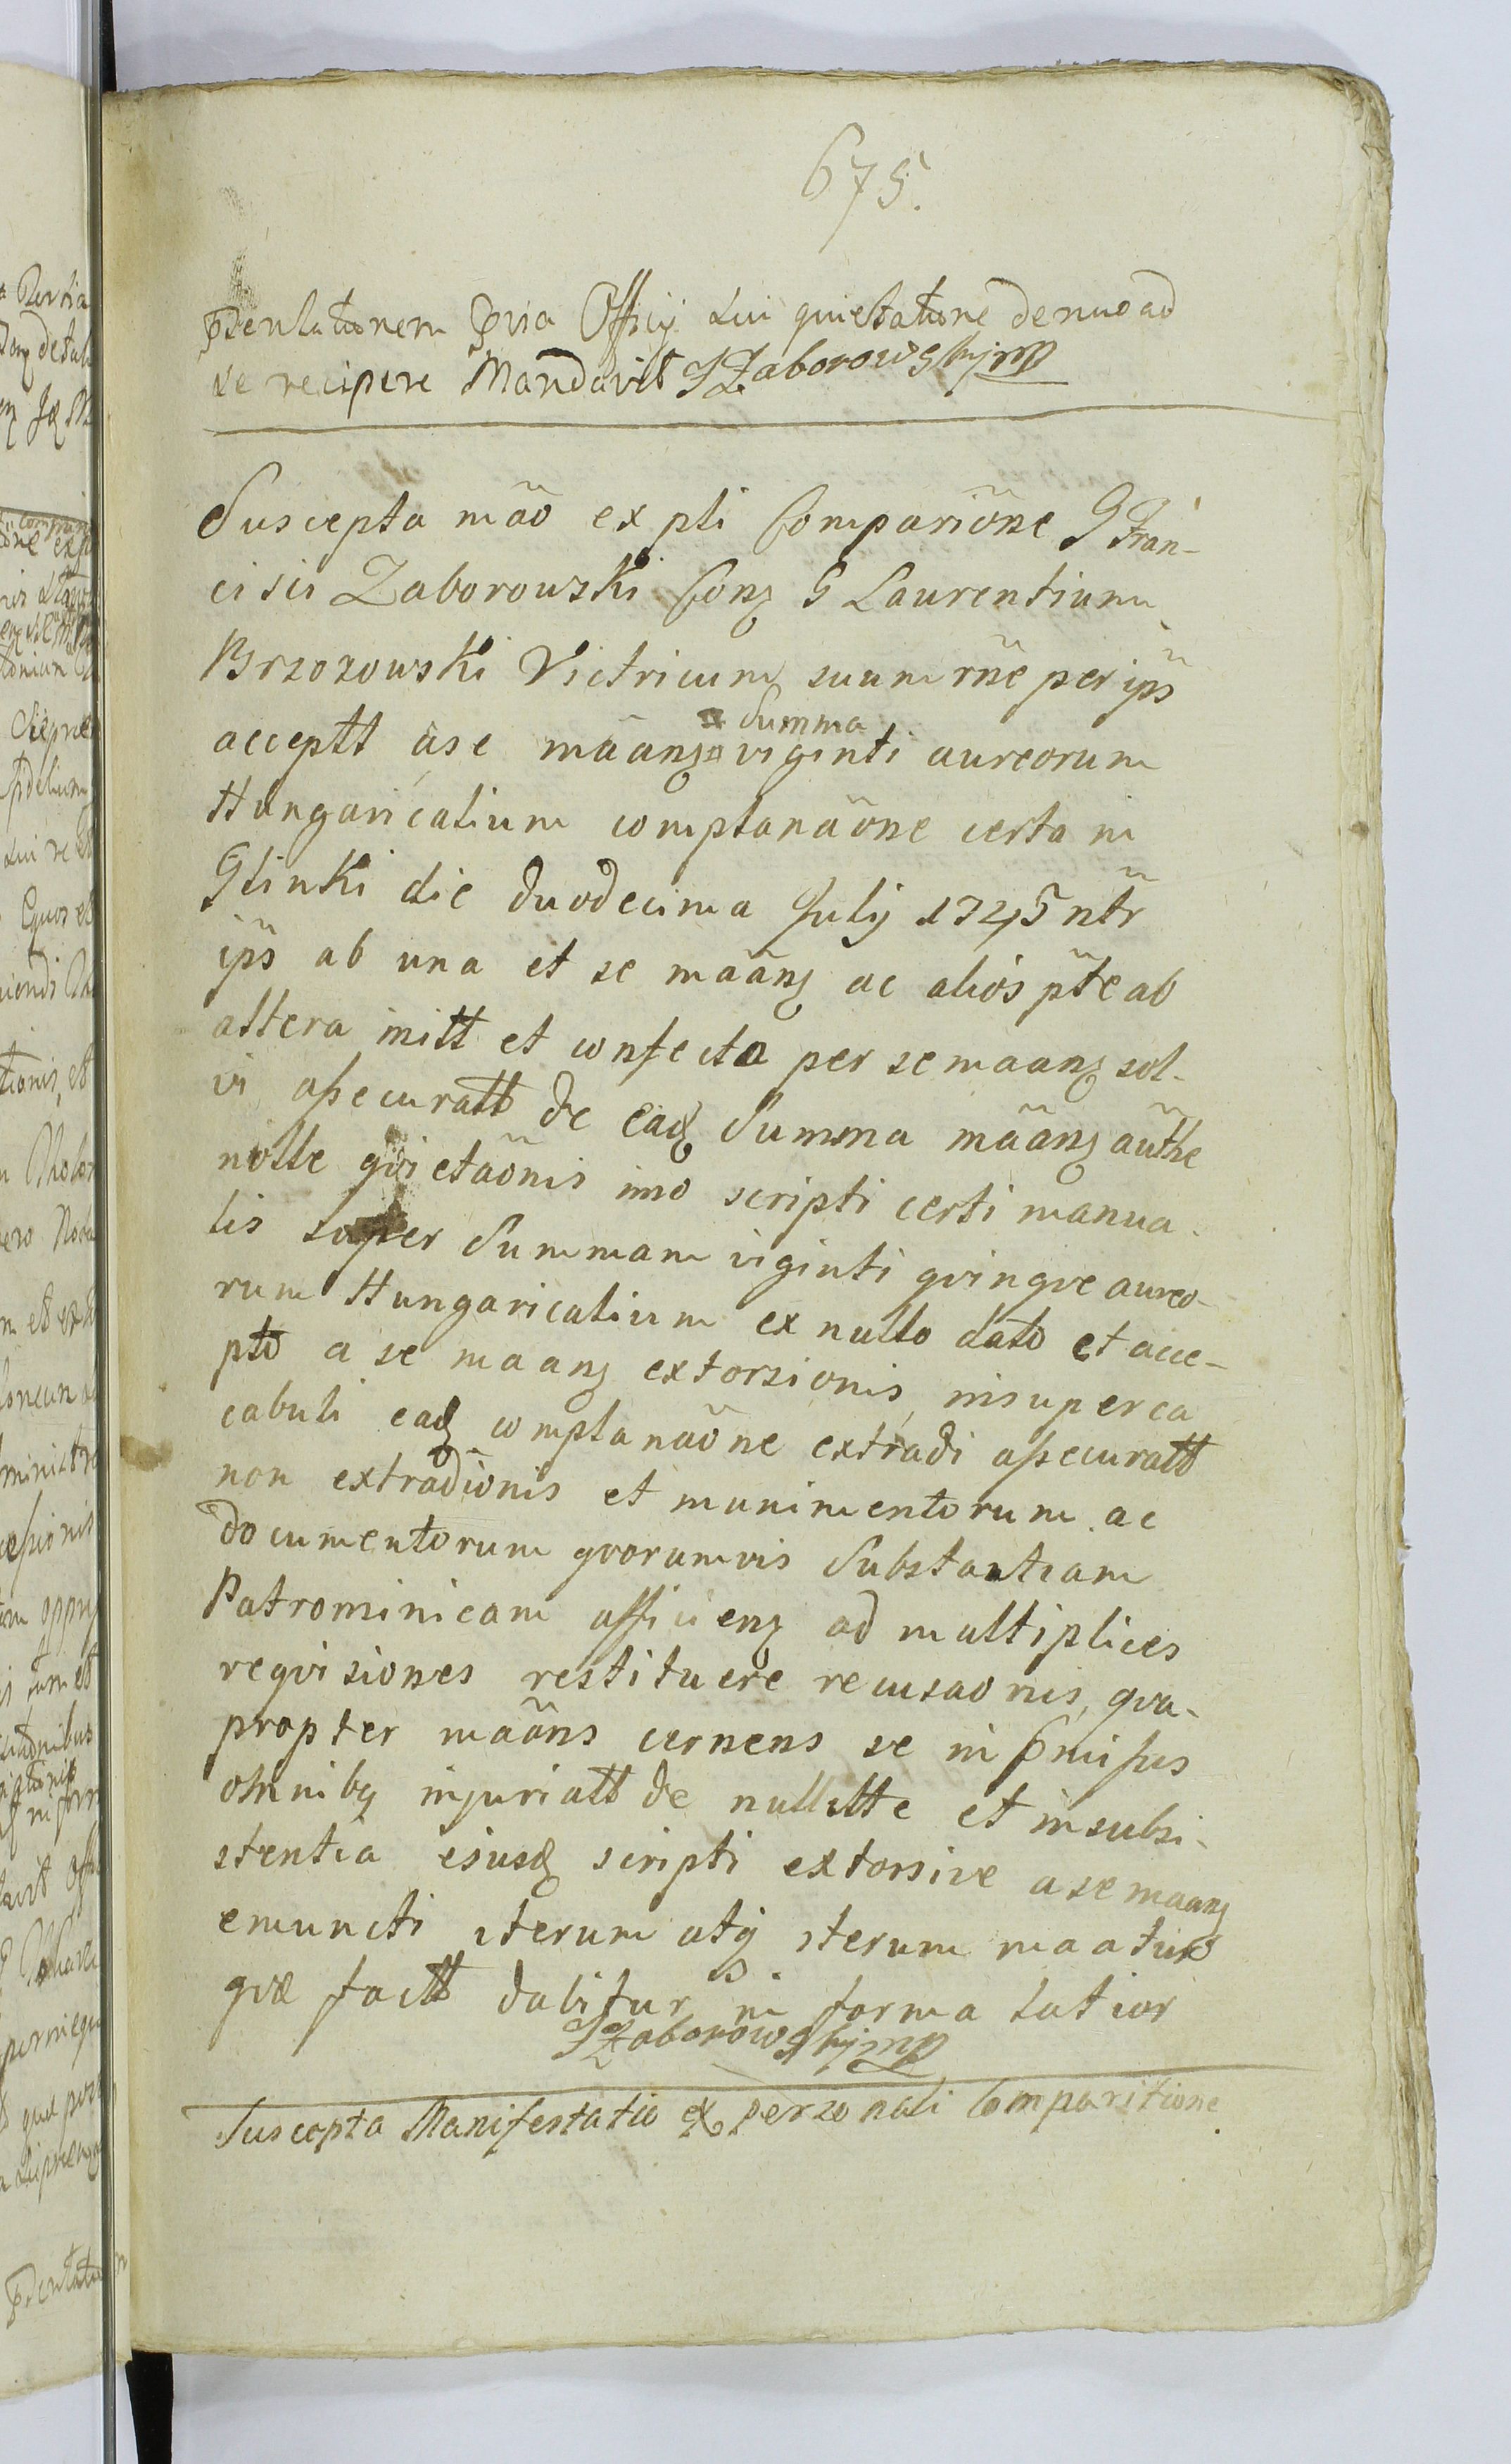 675.
Pdentationem Pvia Officij sui quietatione denuo ad
se recipere Mandavit FZaborowskj mp
Suscepta mão ex pli Comparione G Fran-
cisci Zaborowski Conz G Laurentium
Brzozowski Victricum suum rne per ips
acceptt a se maanz Summa viginti aureorum
Hungaricalium complanaone certa in
Glinki die duodecima July 1745 ntr
ips ab una et se maanz ac alios pte ab
altera initt et confecta per se maanz sol-
vi assecuratt de eadz Summa maanz authe
nitte qvietaonis imo scripti certi manua-
lis super Summam viginti qvinqve aureo-
rum Hungaricalium ex nullo dato et acce-
pto a se maanz extorsionis, insuper ca
cabuli eadz complanaone extradi assecuratt
non extradionis et munimentorum ac
documentorum qvorumvis Substantiam
Patrominicam afficienz ad multiplices
reqvisiones restituere recusaonis, qva-
propter maans cernens se in Pmissis
omnibq injuriatt de nullitte et insubsi-
stentia ejusdz scripti extorsive a se maanz
emuncti iterum atq iterum maatur
qvæ factt dabitur in forma latior
FZaborowskj mp
Suscepta Manifestatio ex personali Comparitione